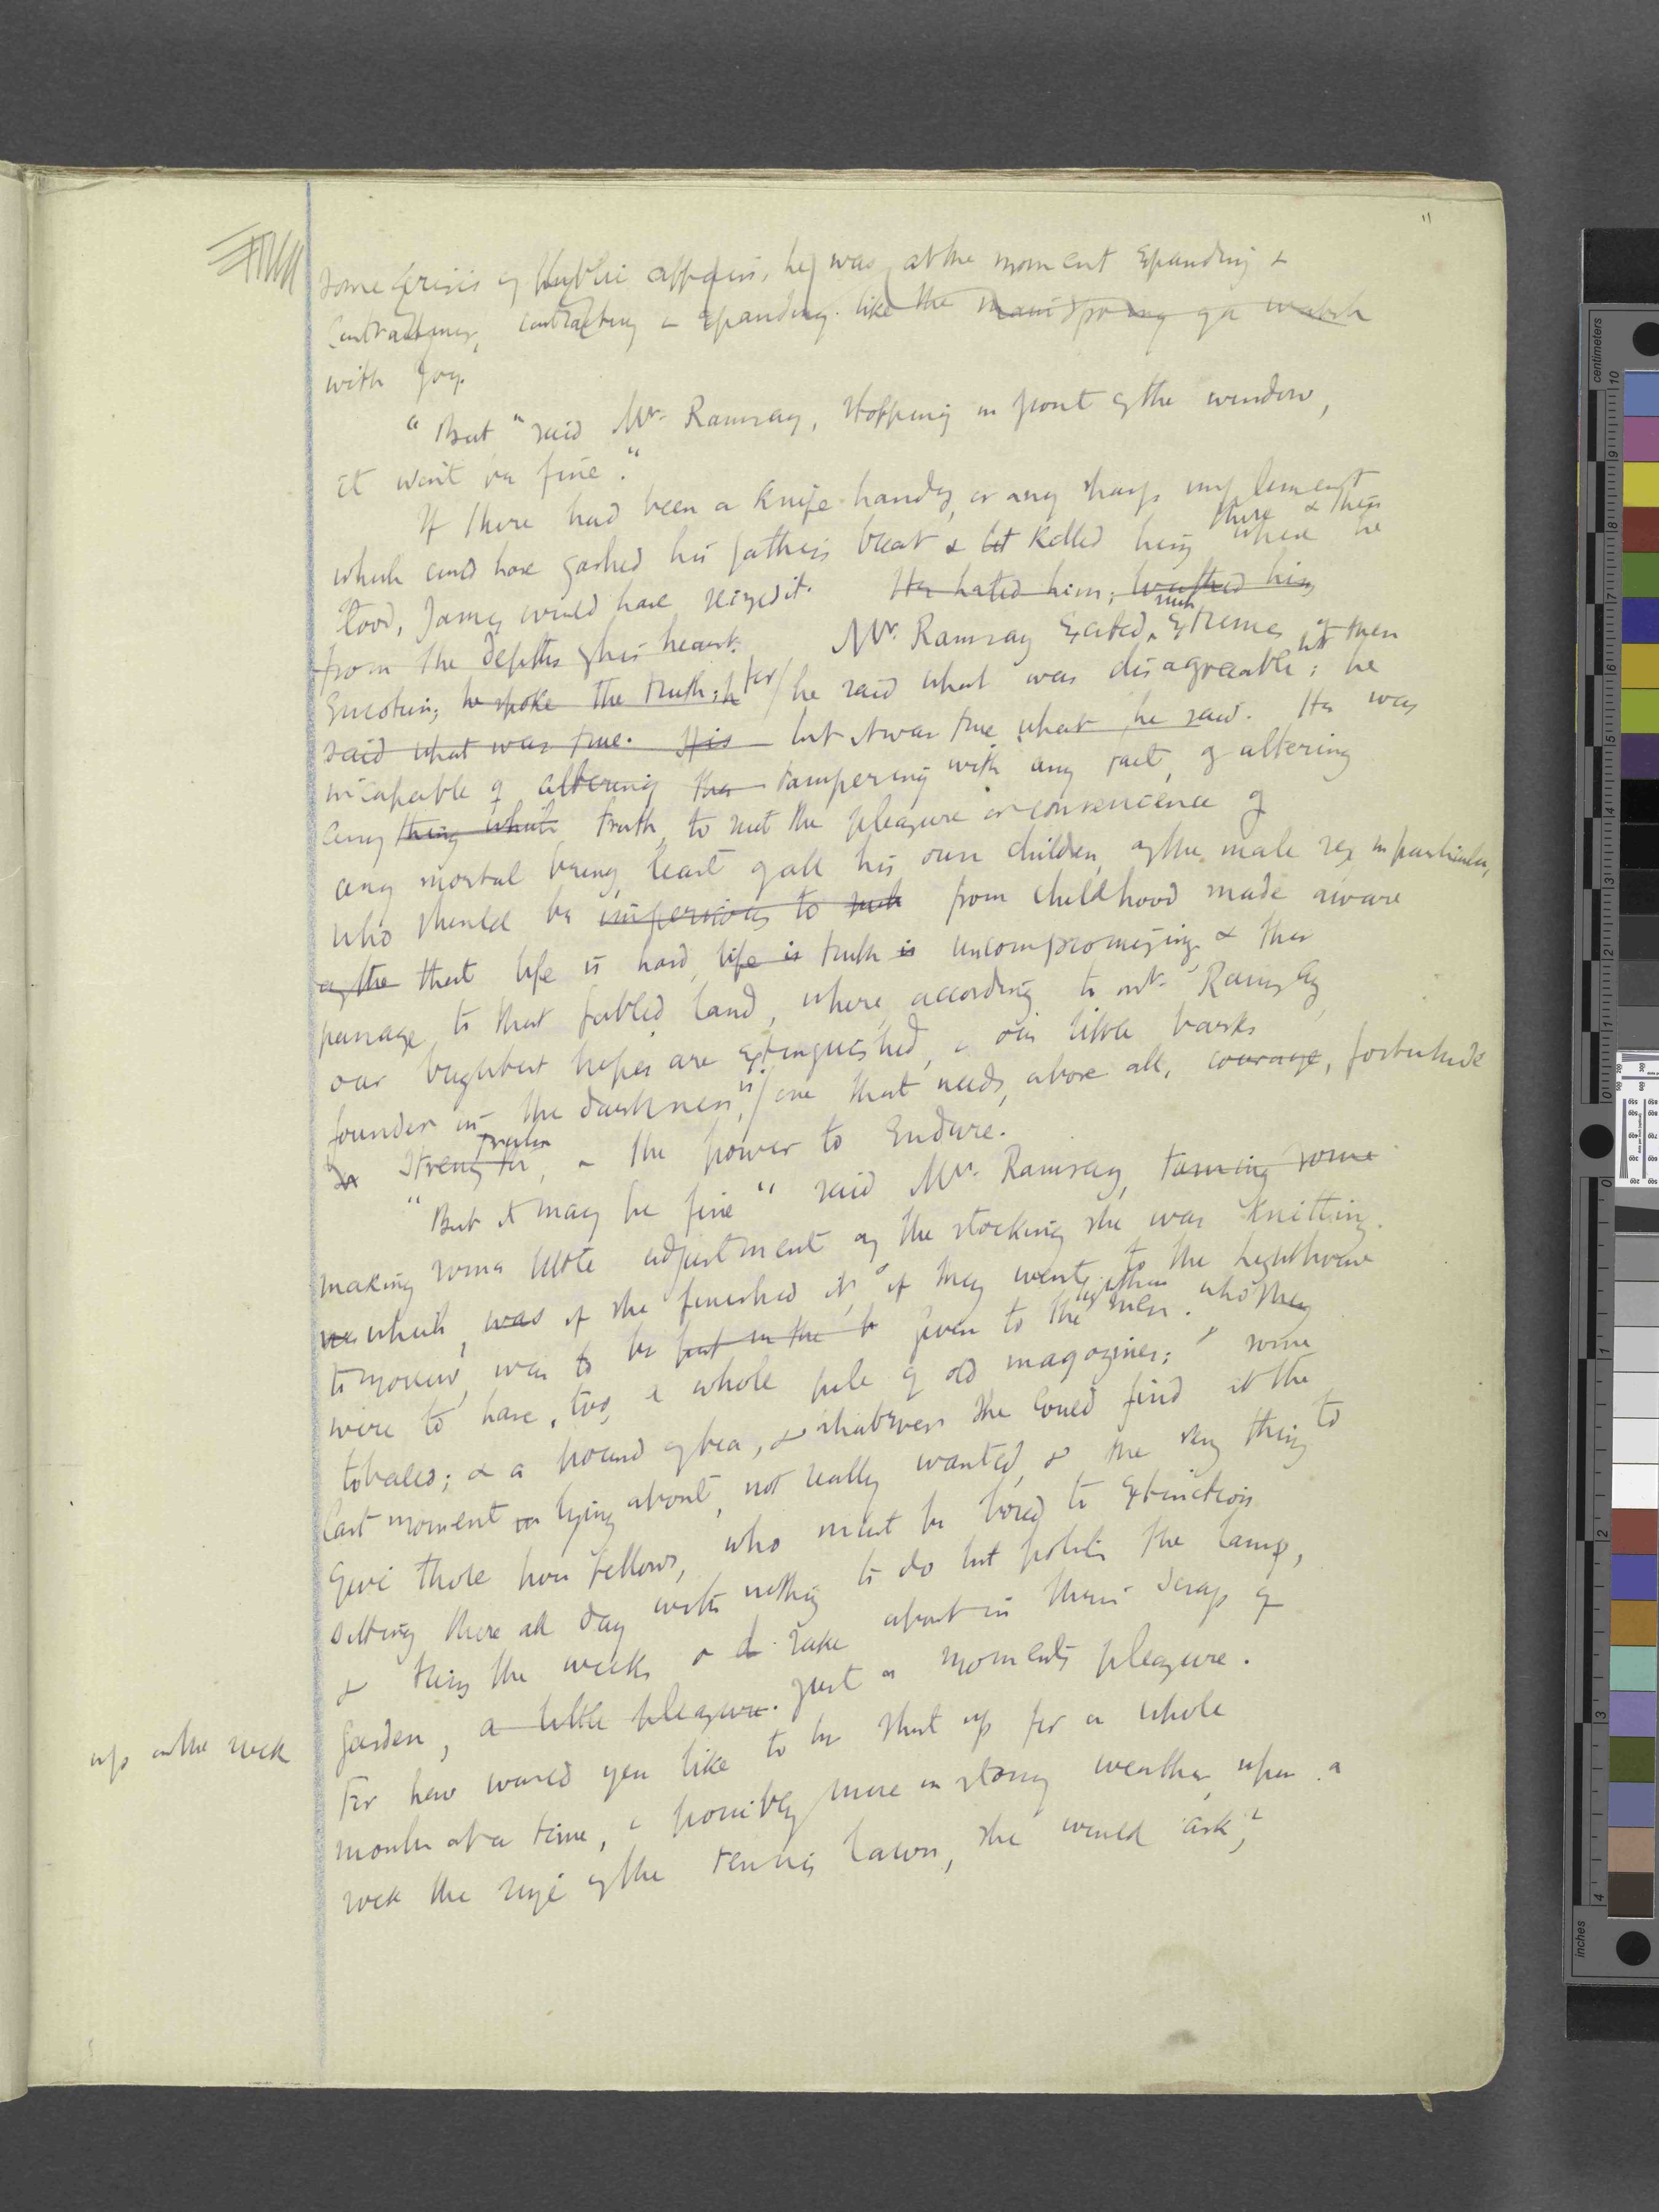 11
some crisis of public affairs, he was, at the moment expanding &
contracting, contracting & expanding. like the mainspring of a watch
with joy.
"But" said Mr. Ramsay, stopping in front of the window,
it wont be fine."
If there had been a knife handy, or any sharp implement
which could have gashed his father's breast & killed him there & then where he
stood, James would have seized it. He hated him; him
from the depths of his heart. Mr. Ramsay excited such extremes of
emotion; he spoke the truth; for he said what was disagreeable; he
said what was true. His but it was true what he said. He was
incapable of altering the tampering with any fact, of altering
any thing which truth, to suit the pleasure or convenience of
any mortal being, least of all his own children, of the male sex in particular,
who should be impervious to such from childhood made aware
of the that life is hard, life is truth is uncompromising, & the
passage to that fabled land, where, according to Mr. Ramsay,
our brightest hopes are extinguished, & our little barks
founder in the darkness, is one that needs, above all, courage, fortitude
strength, truth & the power to endure.
"But it may be fine" said Mrs. Ramsay, turning some
making some little adjustment of the stocking she was knitting.
which, was if she finished it, if they went to the Lighthouse
tomorrow, was to be put in the given to the men. who they
were to have, too, a whole pile of old magazines; some
tobacco; & a pound of tea, & whatever she could find at the
last moment lying about, not really wanted, & the very thing to
give those poor fellows, who must be bored to extinction
sitting there all day with nothing to do but polish the lamp,
& trim the wick & rake about in their scrap of
garden, a little pleasure. just a moments pleasure.
up on the rock
For how would you like to be shut up for a whole
month at a time, & possibly more in stormy weather, upon a
rock the size of the tennis lawn, she would ask,